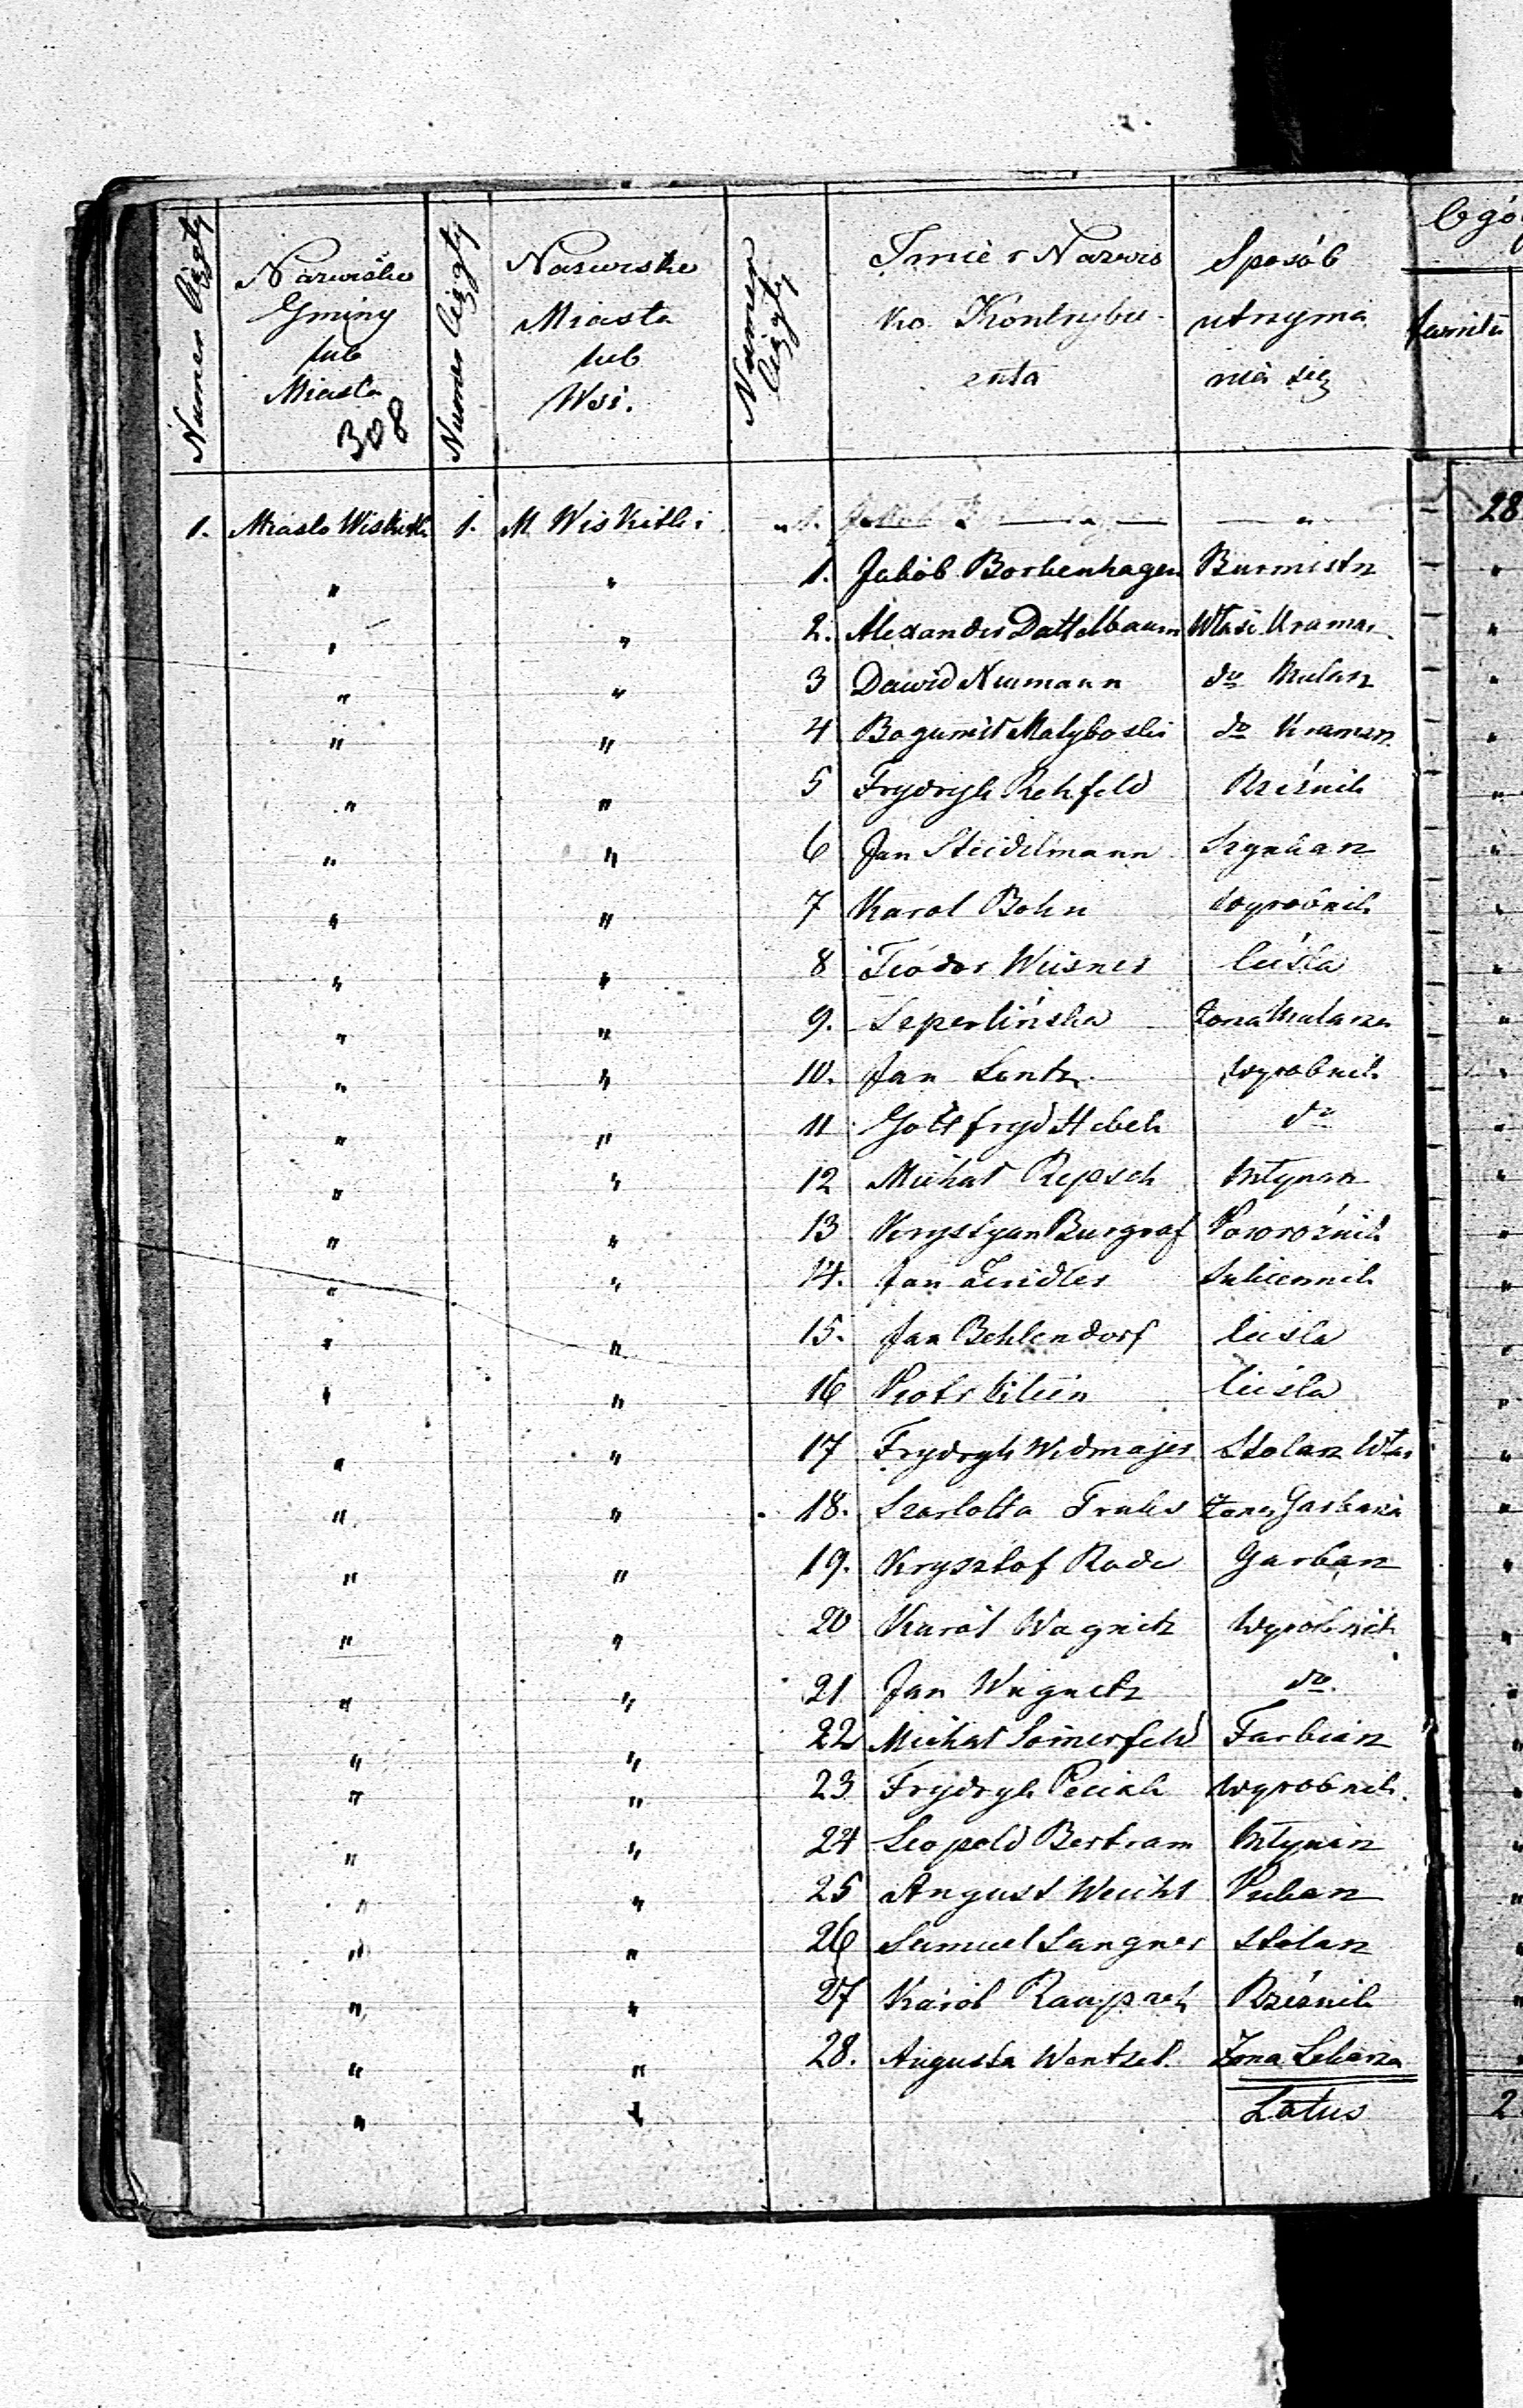 Numer Ciągły
Nazwisko Gminy lub Miasta
308
Numer Ciągły
Nazwisko Miasta lub Wsi.
Numer Ciągły
Imie i Nazwis
ko Kontrybu
enta
Sposób
utrzyma
nia się
Ogó
familii
1. Miasto Wiskitki 1. M. Wiskitki 1. " 28
" " 1. Jakób Borkenhagen Burmistrz
" " 2. Alexander Dattelbaum Właś. Kramar
" " 3 Dawid Numann do Mularz
" " 4 Bogumił Małyboski do Kramarz
" " 5 Frydryk Rehfeld Rzeźnik
" " 6 Jan Steidelmann Szynkarz
" " 7 Karol Bohn Wyrobnik
" " 8 Teodor Weisner Cieśla
" " 9. Szperlińska Żona Mularza
" " 10. Jan Lentz Wyrobnik
" " 11 Gottfryd Habeh do
" " 12 Michał Repsch Młynarz
" " 13 Krystyan Burgraf Powroźnik
" " 14. Jan Zeidler Sukiennik
" " 15. Jan Behlendorf Cieśla
" " 16 Piotr Cieśla
" " 17 Frydryk Widmajer Stolarz Właś
" " 18. Szarlotta Żona Garbarza
" " 19. Krysztof Rade Garbarz
" " 20 Karól Wagnitz Wyrobnik
" " 21 Jan Wagnitz do.
" " 22 Michał Somerfeld Farbiarz
" " 23 Frydryk Peciak Wyrobnik.
" " 24 Leopold Bertram Młynarz
" " 25 August Weicht Piekarz
" " 26 Samuel Langner Stolarz
" " 27 Karól Raupach Rzeźnik
" " 28. Augusta Wentzel. Żona Lekarza
" " Latus 2